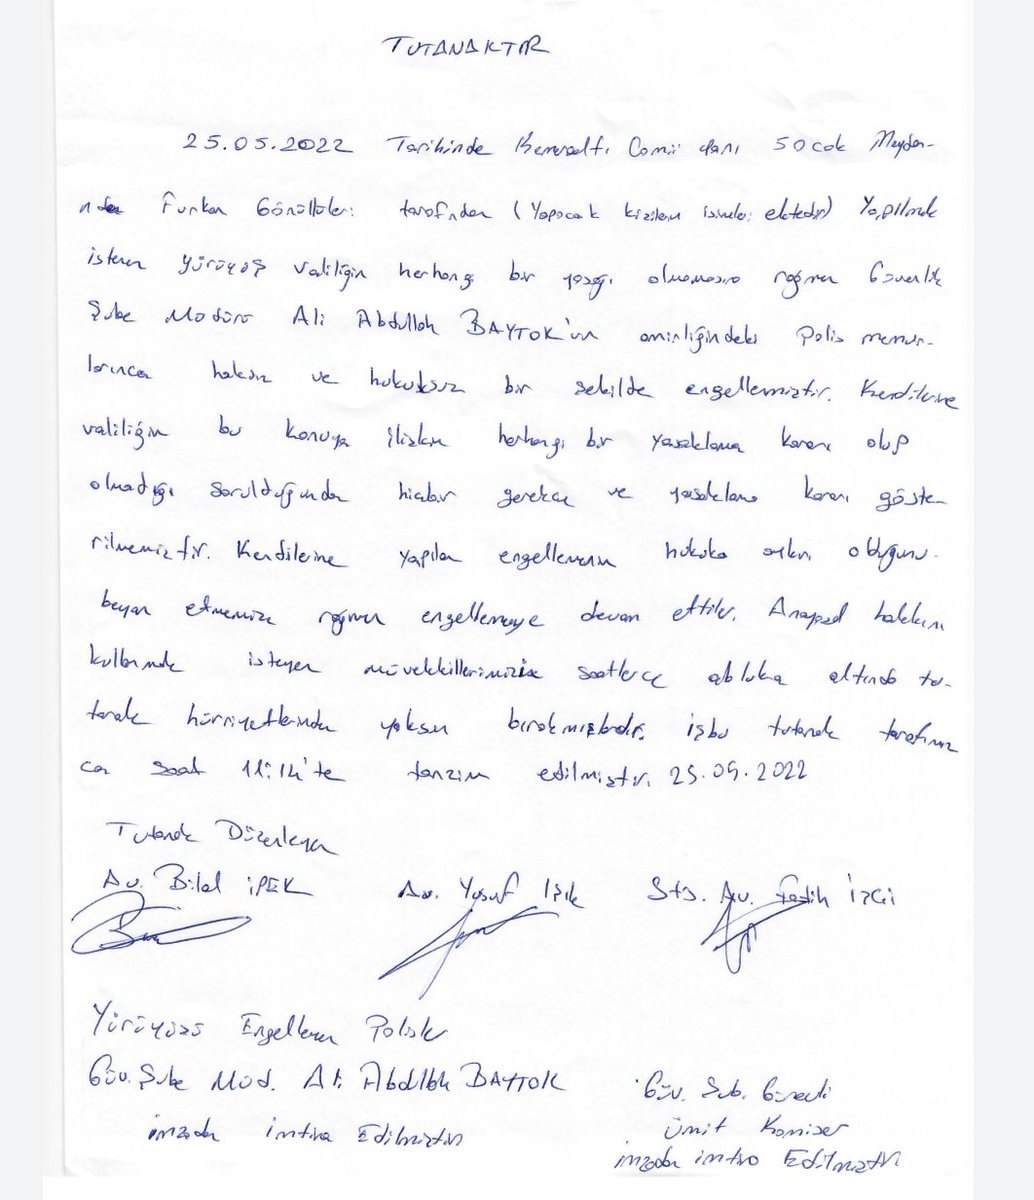 TUTANAKTIR
25.05.2022 Tarihinde Kemeraltı Camii yanı 5 Ocak Meydan-
nda Furkan Gönüllüleri tarafından (Yapacak kişilerin isimleri ektedir) Yapılmak
istenen yürüyüş valiliğin herhangi bir yasağı olmamasına rağmen Güvenlik
Şube Müdürü Ali Abdullah BAYTOK'un amirliğindeki Polis memur-
larınca haksız ve hukuksuz bir şekilde engellenmiştir. Kendilerine
valiliğin bu konuya ilişkin herhangi bir yasaklama kararı olup
olmadığı sorulduğunda hiçbir gerekçe ve yasaklama kararı göste-
rilmemiştir. Kendilerine yapılan engellemenin hukuka aykırı olduğunu
beyan etmemize rağmen engellemeye devam ettiler. Anayasal hakkını
kullanmak isteyen müvekkillerimizin saatlerce abluka altında tu-
tarak hürriyetlerinden yoksun bırakmışlardır. işbu tutanak tarafımız
ca saat 11:14'te tanzim edilmiştir. 25.05.2022
Tutanak Düzenleyen
Av. Bilal İPEK Av. Yusuf Işık Stj. Av. Fatih İzci
Yürüyüşü Engelleyen Polisler
Güv. Şube Müd. Ali Abdullah BAYTOK
imzadan imtina Edilmiştir
Güv. Şub. Görevli
Ümit Komiser
imzadan imtina Edilmiştir